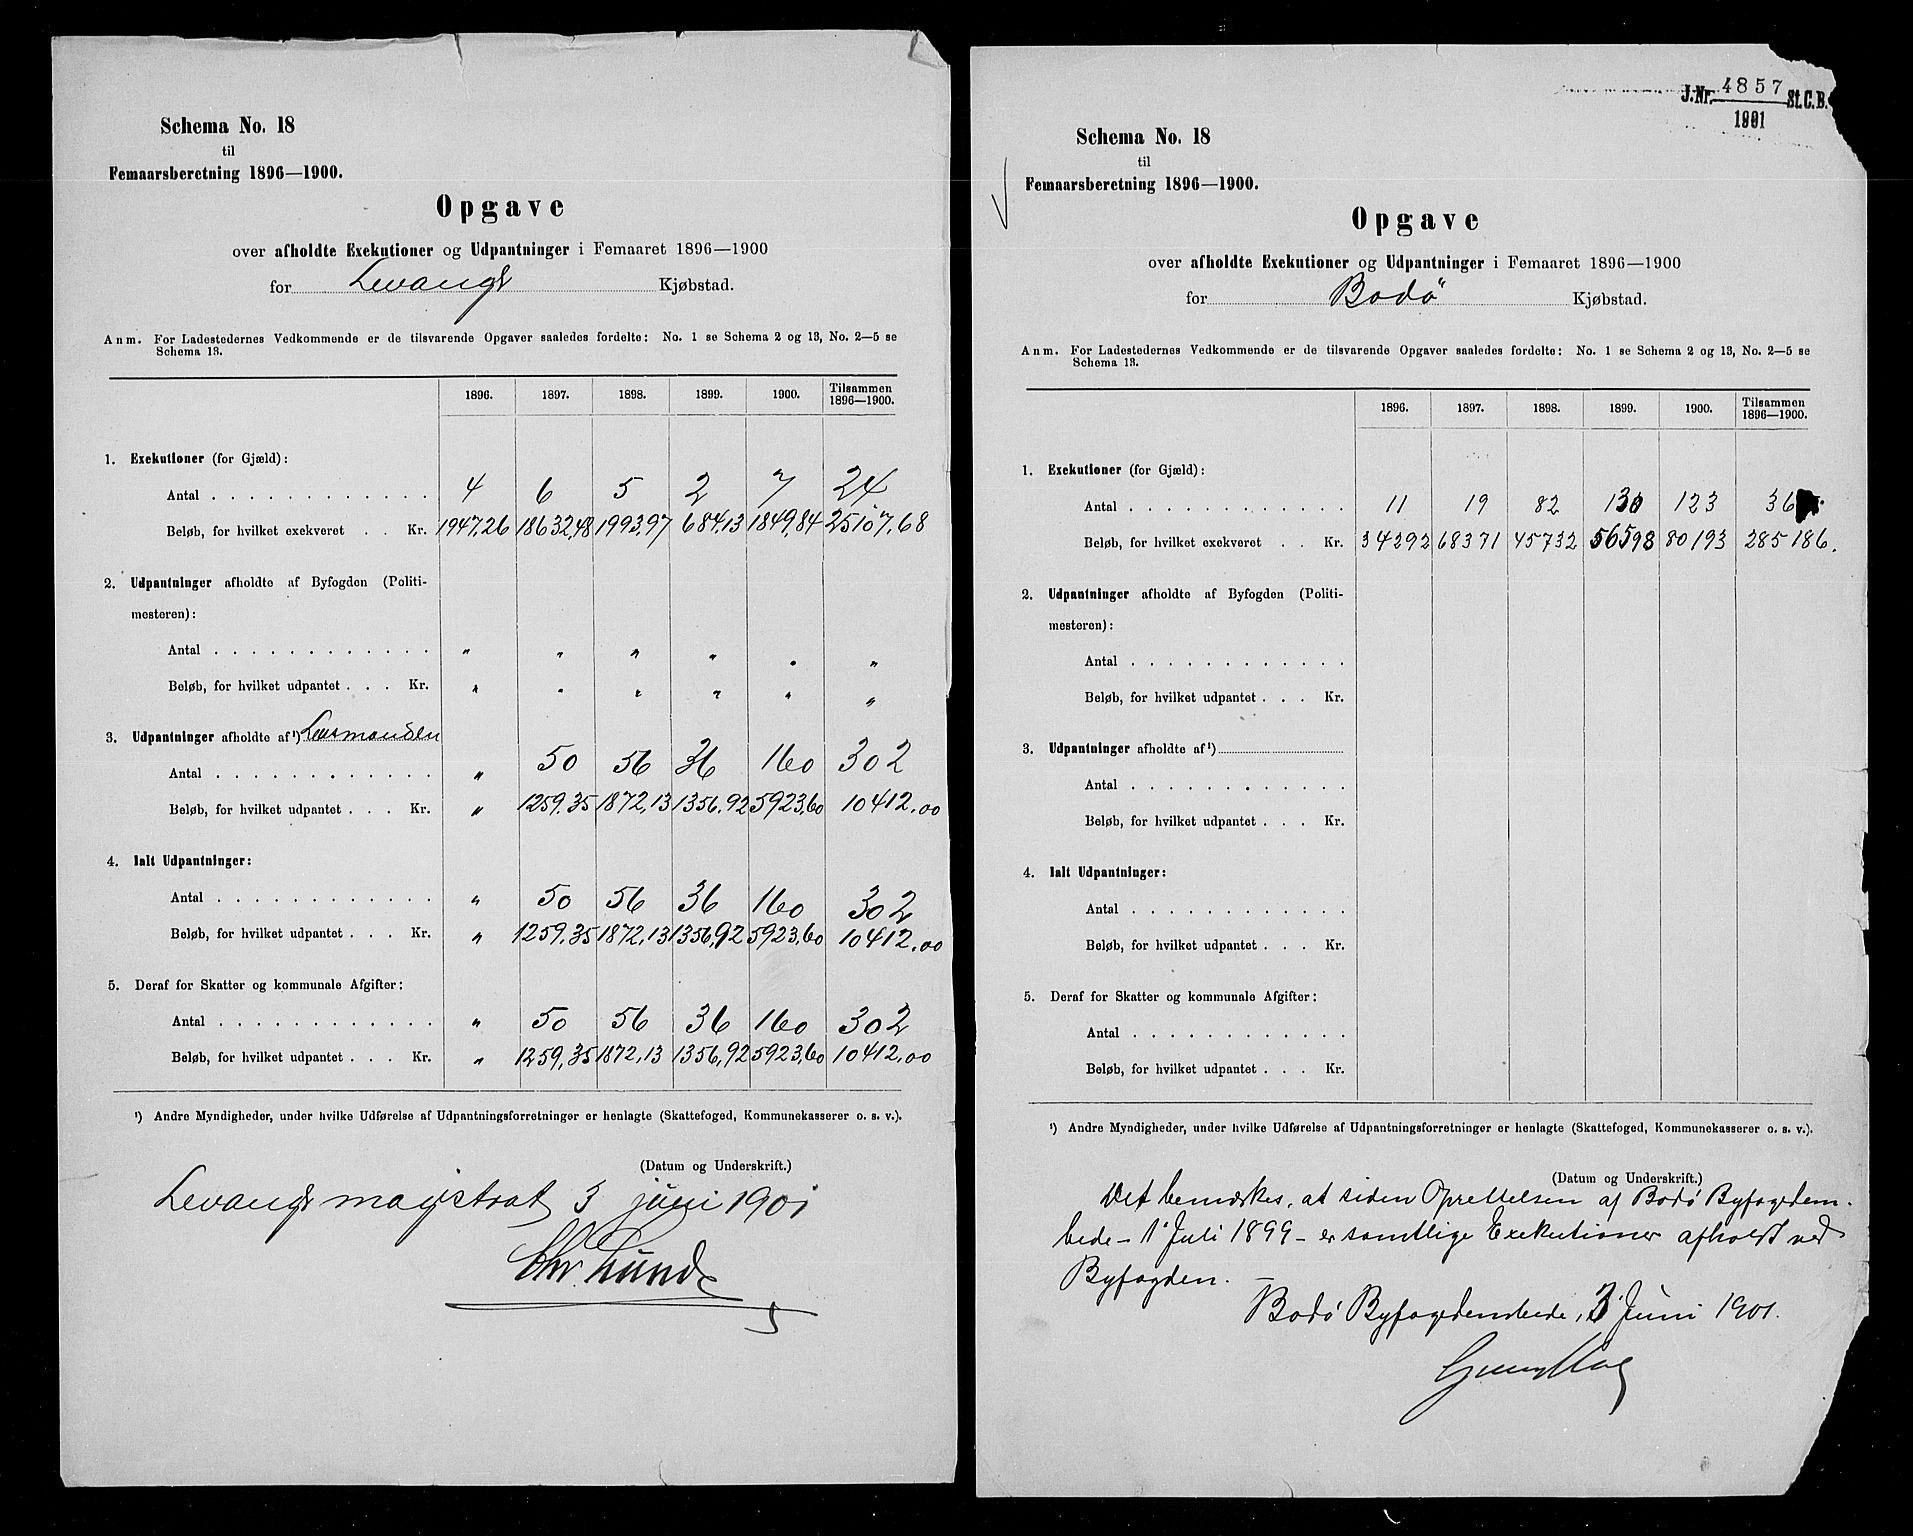 Schema No. 18
til
Femaarsberetning 1896—1900.
Opgave
over afholdte Exekutioner og Udpantninger i Femaaret 1896—1900
for Levanger Kjøbstad.
Anm. For Ladestedernes Vedkommende er de tilsvarende Opgaver saaledes fordelte: No. 1 se Schema 2 og 13, No. 2—5 se
Schema 13.
1896. 1897. 1898. 1899. 1900. Tilsammen 1896—1900.
1. Exekutioner (for Gjæld):
Antal . . . . . . . . . . . . 4 6 5 2 7 24
Beløb, for hvilket exekveret . . Kr. 1947,26 18632,48 1993,97 684,13 1849,84 25107,68
2. Udpantninger afholdte af Byfogden (Politi-
mesteren):
Antal . . . . . . . . . . . . " " " " " "
Beløb, for hvilket udpantet . . . Kr. " " " " " "
3. Udpantninger afholdte af¹) Lensmanden
Antal . . . . . . . . . . . . " 50 56 36 160 302
Beløb, for hvilket udpantet . . . Kr. " 1259,35 1872,13 1356,92 5923,60 10412,00
4. Ialt Udpantninger:
Antal . . . . . . . . . . . . " 50 56 36 160 302
Beløb, for hvilket udpantet . . . Kr. " 1259,35 1872,13 1356,92 5923,60 10412,00
5. Deraf for Skatter og kommunale Afgifter:
Antal . . . . . . . . . . . . " 50 56 36 160 302
Beløb, for hvilket udpantet . . . Kr. " 1259,35 1872,13 1356,92 5923,60 10412,00
¹) Andre Myndigheder, under hvilke Udførelse af Udpantningsforretninger er henlagte (Skattefoged, Kommunekasserer o. s. v.).
(Datum og Underskrift.)
Levanger magistrat 3 juni 1901
Chr. Lund
J.Nr. 4857 St.C.B.
1901
Schema No. 18
til
Femaarsberetning 1896—1900.
Opgave
over afholdte Exekutioner og Udpantninger i Femaaret 1896—1900
for Bodø Kjøbstad.
Anm. For Ladestedernes Vedkommende er de tilsvarende Opgaver saaledes fordelte: No. 1 se Schema 2 og 13, No. 2—5 se
Schema 13.
1896. 1897. 1898. 1899. 1900. Tilsammen 1896—1900.
1. Exekutioner (for Gjæld):
Antal . . . . . . . . . . . . 11 19 82 130 123 36
Beløb, for hvilket exekveret . . Kr. 34292 68371 45732 56598 80193 285186.
2. Udpantninger afholdte af Byfogden (Politi-
mesteren):
Antal . . . . . . . . . . . .
Beløb, for hvilket udpantet . . . Kr.
3. Udpantninger afholdte af¹)
Antal . . . . . . . . . . . .
Beløb, for hvilket udpantet . . . Kr.
4. Ialt Udpantninger:
Antal . . . . . . . . . . . .
Beløb, for hvilket udpantet . . . Kr.
5. Deraf for Skatter og kommunale Afgifter:
Antal . . . . . . . . . . . .
Beløb, for hvilket udpantet . . . Kr.
¹) Andre Myndigheder, under hvilke Udførelse af Udpantningsforretninger er henlagte (Skattefoged, Kommunekasserer o. s. v.).
(Datum og Underskrift.)
Det bemærkes, at siden Oprettelsen af Bodø Byfogdem-
bede – 1 Juli 1899 – er samtlige Exekutioner afholdt ved
Byfogden.
Bodø Byfogdembede, 3 Juni 1901.